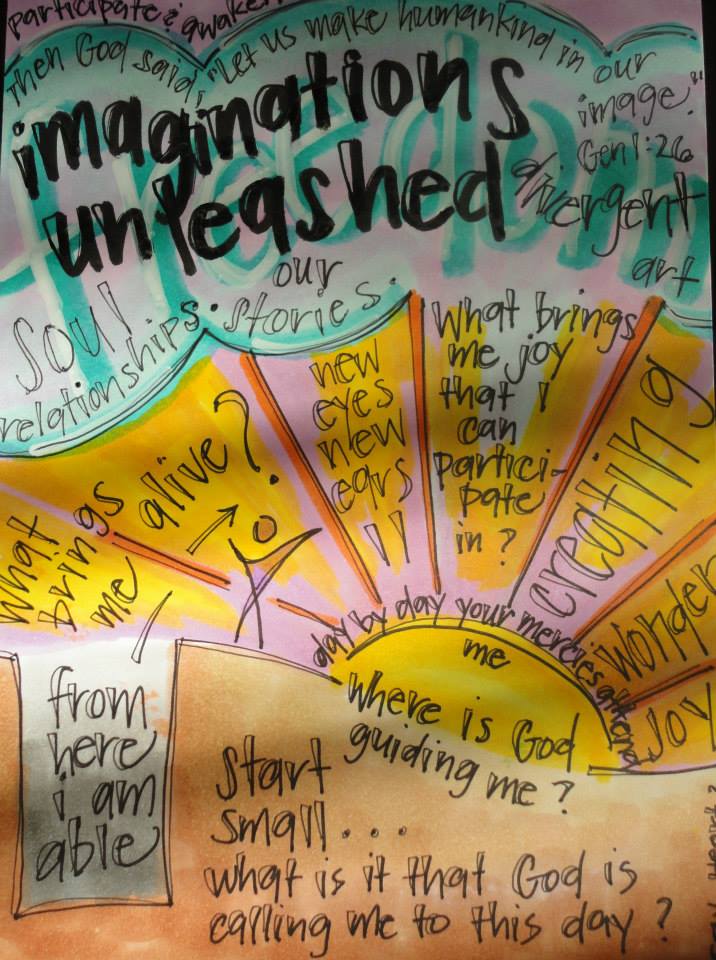 participate & awaken
Then God said, "Let us make humankind in our
image."
Gen 1:26
freedom
imaginations
unleashed
divergent
art
soul
relationships.
our
stories.
what
brings
me
alive?
new
eyes
new
ears
!!
What brings
me joy
that I
can
partici-
pate
in?
creating
wonder
joy
day by day your mercies attend
me
where is God
guiding me?
from
here
i am
able
start
small...
what is it that God is
calling me to this day?